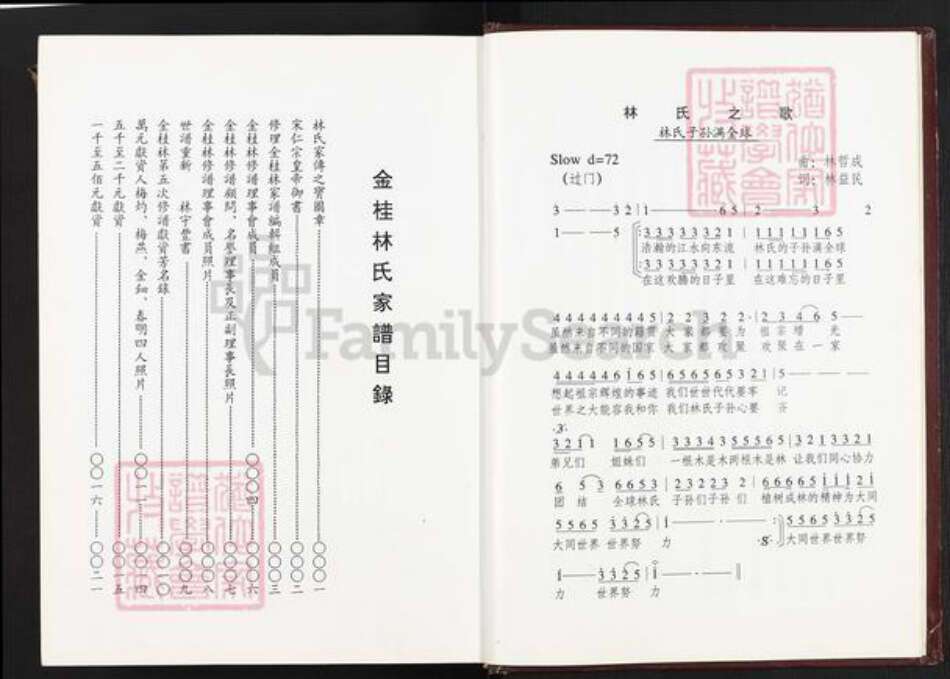 金桂林氏家譜目錄
林氏家傳之寶圖章 〇〇〇一
宋仁宗皇帝御書 〇〇〇二
修理金桂林家譜編輯組成員 〇〇〇三
金桂林修譜理事會成員 〇〇〇四 〇〇〇六
金桂林修譜顧問、名譽理事長及正副理事長照片 〇〇〇七
金桂林修譜理事會成員照片 〇〇〇八
世譜重新 林宇豐書 〇〇〇九
金桂林第五次修譜獻資芳名錄 〇〇一〇
萬元獻資人梅灼、梅燕、金鈿、春明四人照片 〇〇一一 〇〇一四
五千至二千元獻資 〇〇一五
一千至五佰元獻資 〇〇一六 〇〇二一
林氏之歌
林氏子孙满全球
Slow d=72
(过门)
曲: 林哲成
词: 林益民
3 — — 3 2 | 1 — — 6 5 | 2 — 3 2
1 — — 5 3 3 3 3 3 3 2 1 | 1 1 1 1 1 1 6 5
浩瀚的江水向东流 林氏的子孙满全球
3 3 3 3 3 3 2 1 | 1 1 1 1 1 1 6 5
在这欢腾的日子里 在这难忘的日子里
4 4 4 4 4 4 4 4 5 | 2 2 3 2 2 · | 2 3 4 6 5 —
虽然来自不同的籍贯 大家都要为 祖宗增光
虽然来自不同的国家 大家都欢聚 欢聚在一家
4 4 4 4 4 6 i 6 5 | 6 5 6 5 6 5 3 2 1 | 5 — —
想起祖宗辉煌的事迹 我们世世代代要牢记
世界之大能容我和你 我们林氏子孙心要齐
3 2 1 1 1 6 5 5 | 3 3 3 4 3 5 5 5 6 5 | 3 2 1 3 3 2 1
弟兄们 姐妹们 一根木是木两根木是林 让我们同心协力
6 5 3 6 6 5 3 | 2 3 2 2 3 2 | 6 6 6 6 5 i i i 2 i
团结 全球林氏 子孙们子孙们 植树成林的精神为大同
5 5 6 5 3 3 2 5 | i — — — :| 5 5 6 5 3 3 2 5
大同世界 世界努力 大同世界世界努
i — — 3 3 2 5 | i — — — ||
力 世界努力
FamilySearch